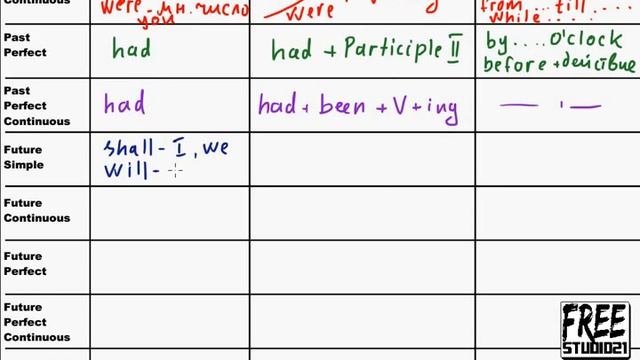 Continuous
were - мн. число
you
were
from ... till ....
while .....
Past
Perfect
had
had + Participle II
by .... O'clock
before + действие
Past
Perfect
Continuous
had
had + been + V + ing
— " —
Future
Simple
shall - I, we
will -
Future
Continuous
Future
Perfect
Future
Perfect
Continuous
FREE
STUDIO21